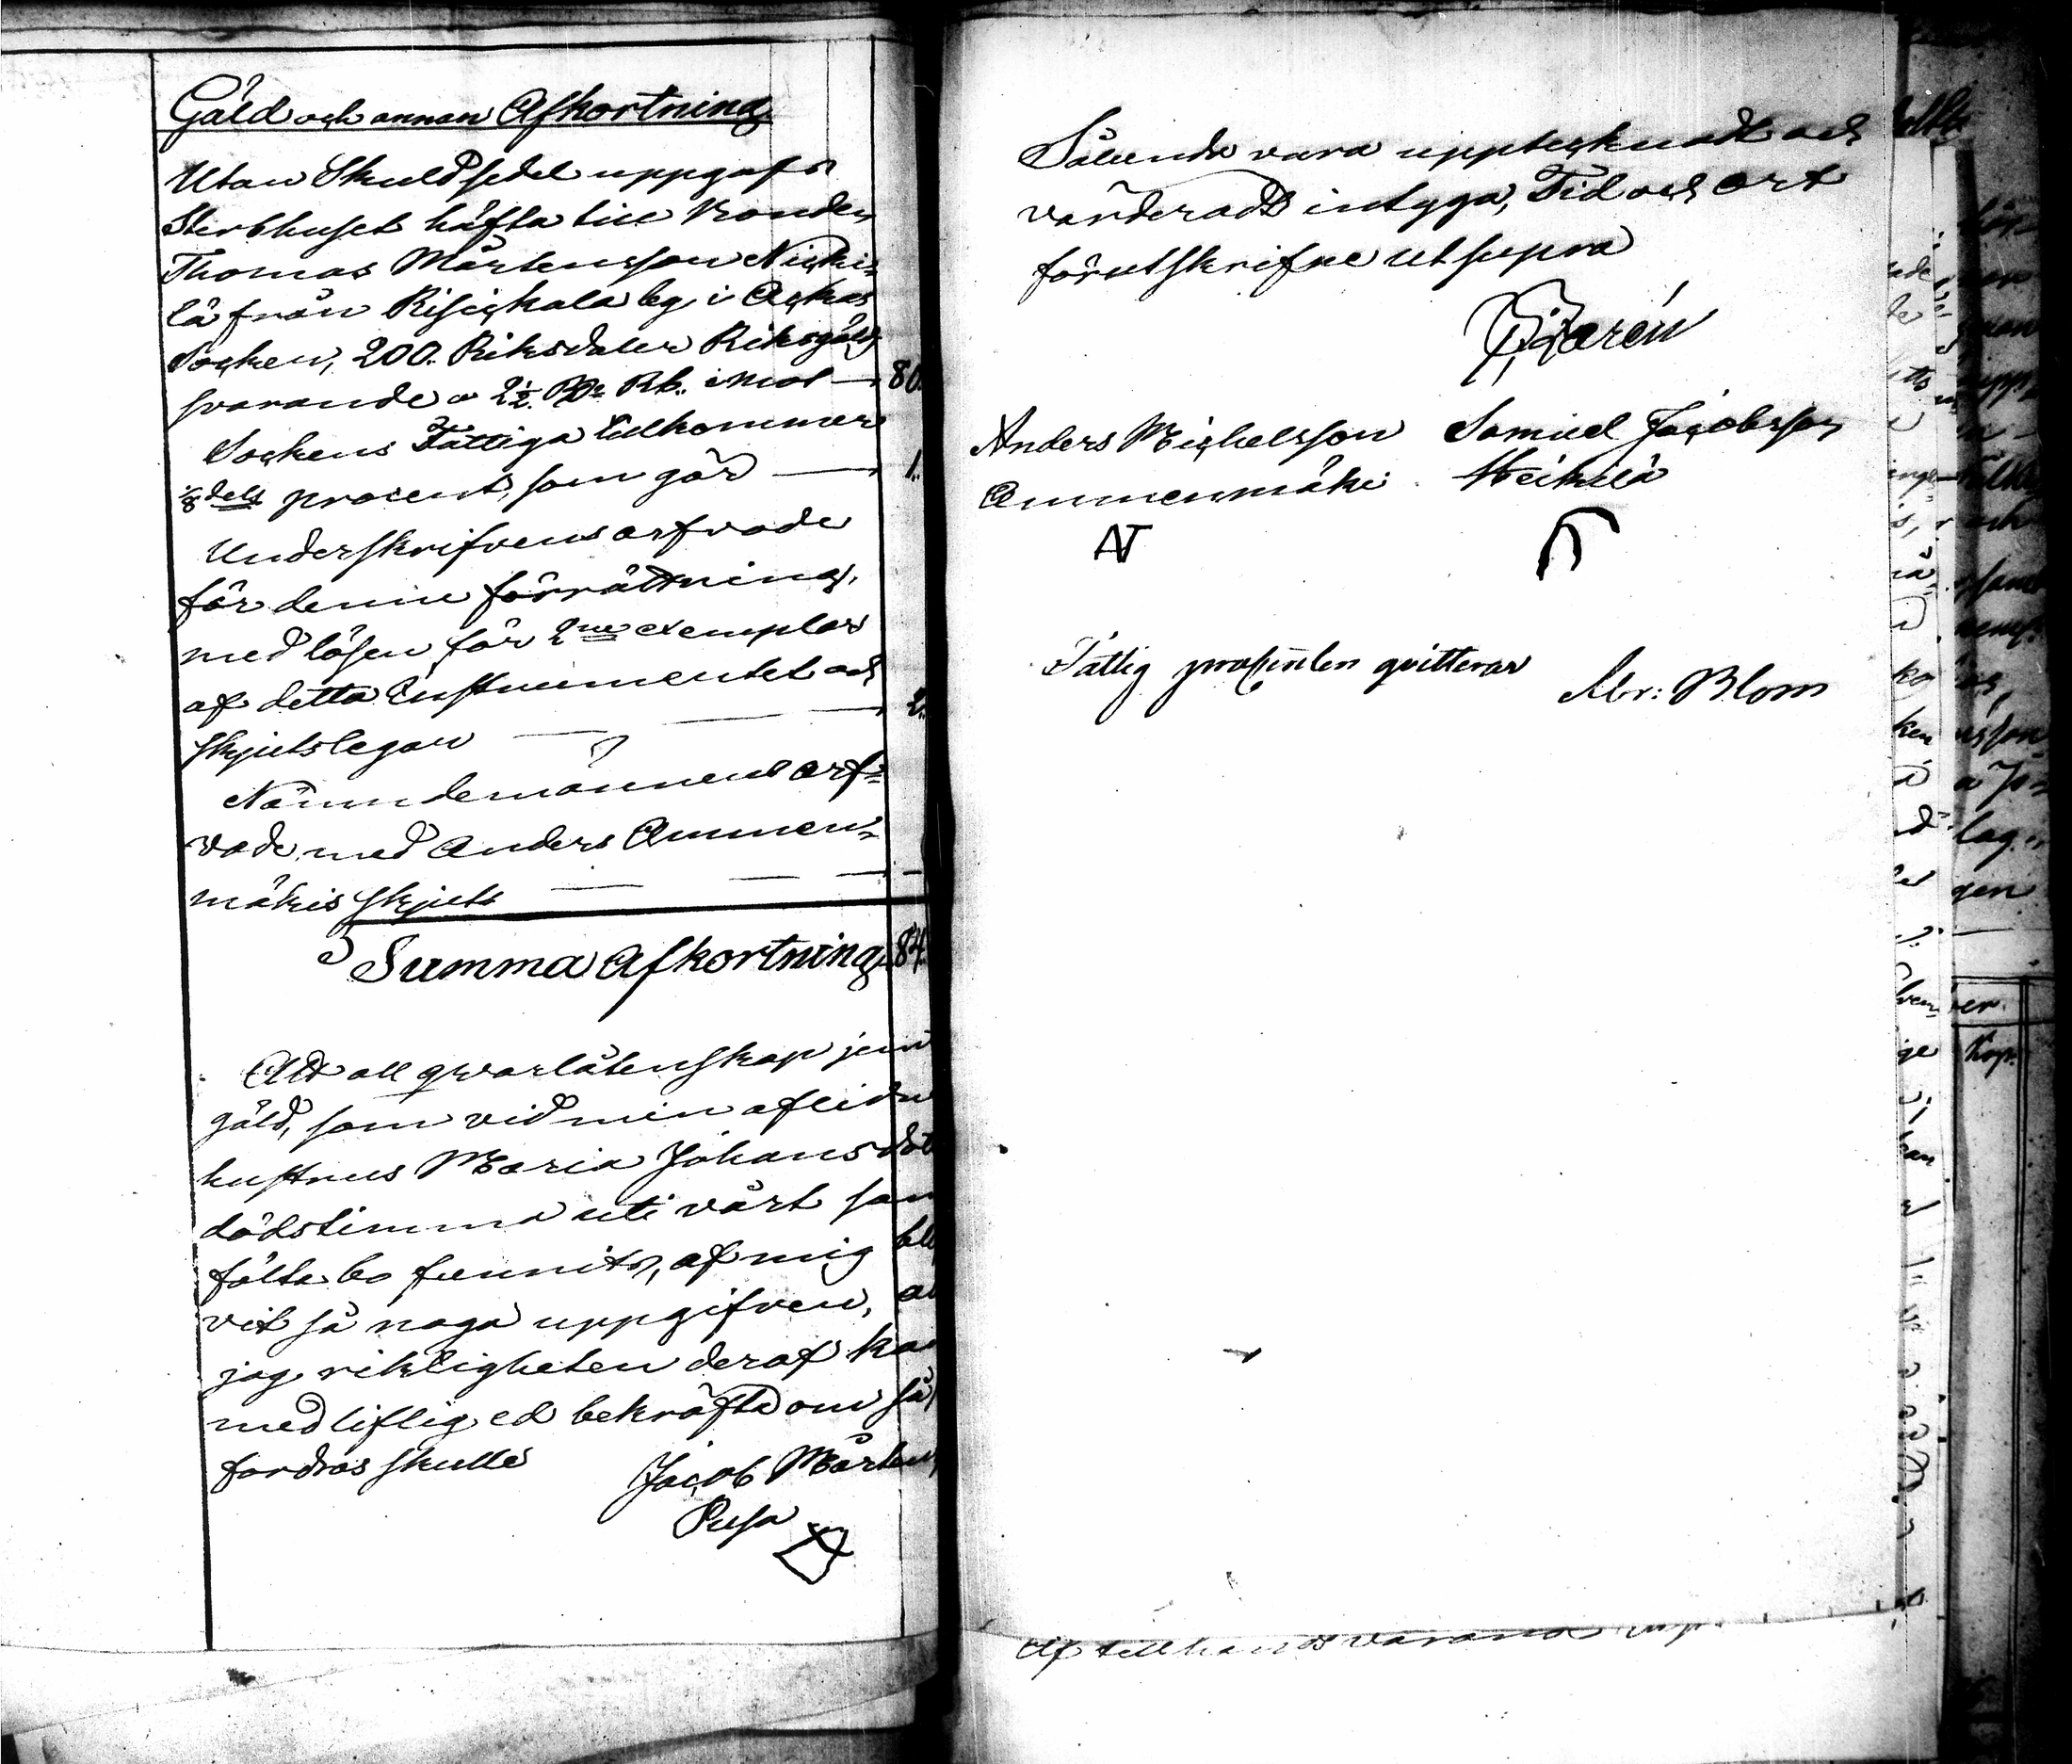 Gäld och annan Afkortning
Utan Skuldsedel uppgafs
Sterbhuset häfta till Bonden
Thomas Mårtensson Nicki-
lä från Risickala by i Ackas
Socken, 200. Riksdaler Riksgäld
svarande a 2½ Rdr Rb. emot — 80.
Sockens Fattiga tillkommer
⅛dels procent, som gör — 1.
Underskrifvens arfvode
för denne förrättning,
med lösen för 2ne exemplar
af detta Instrumentet och
skjutslegan — 2.
Nämndemännens arf-
vode, med Anders Ammen-
mäkis skjuts — —
Summa Afkortning 84.
Att all qvarlåtenskap jem
gäld, som vid min aflidn
hustrus Maria Johansdot
dödstimma uti vårt sam
fälta bo funnits, af mig bli
vit så noga uppgifven, at
jag riktigheten deraf kan
med liflig ed bekräfta om så
fordras skulle
Jacob Mårtens
Pusa
Sålunda vara upptecknadt och
värderadt intyga, Tid och Ort
förutskrifne utsupra
Anders Michelsson Samuel Jacobsson
Ammenmäki Heikilä
AT
Fattig procenten qvitterar
Abr: Blom
Af tillhandavarande